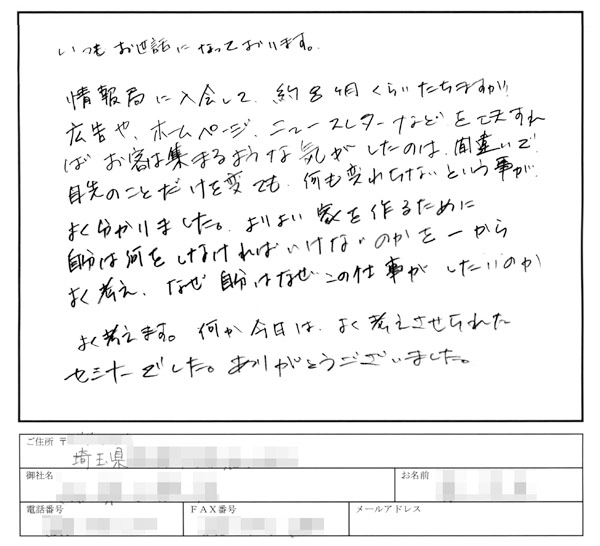 いつもお世話になっております。
情報局に入会して、約8ヶ月くらいたちますが、
広告や、ホームページ、ニュースレターなどを工夫すれ
ばお客は集まるような気がしたのは、間違いで
目先のことだけを変ても、何も変わらないという事が
よく分かりました。よりよい家を作るために
自分は何をしなければいけないのかを一から
よく考え、なぜ自分はなぜこの仕事がしたいのか
よく考えます。何か今日は、よく考えさせられた
セミナーでした。ありがとうございました。
ご住所 〒
埼玉県
御社名 お名前
電話番号 FAX番号 メールアドレス